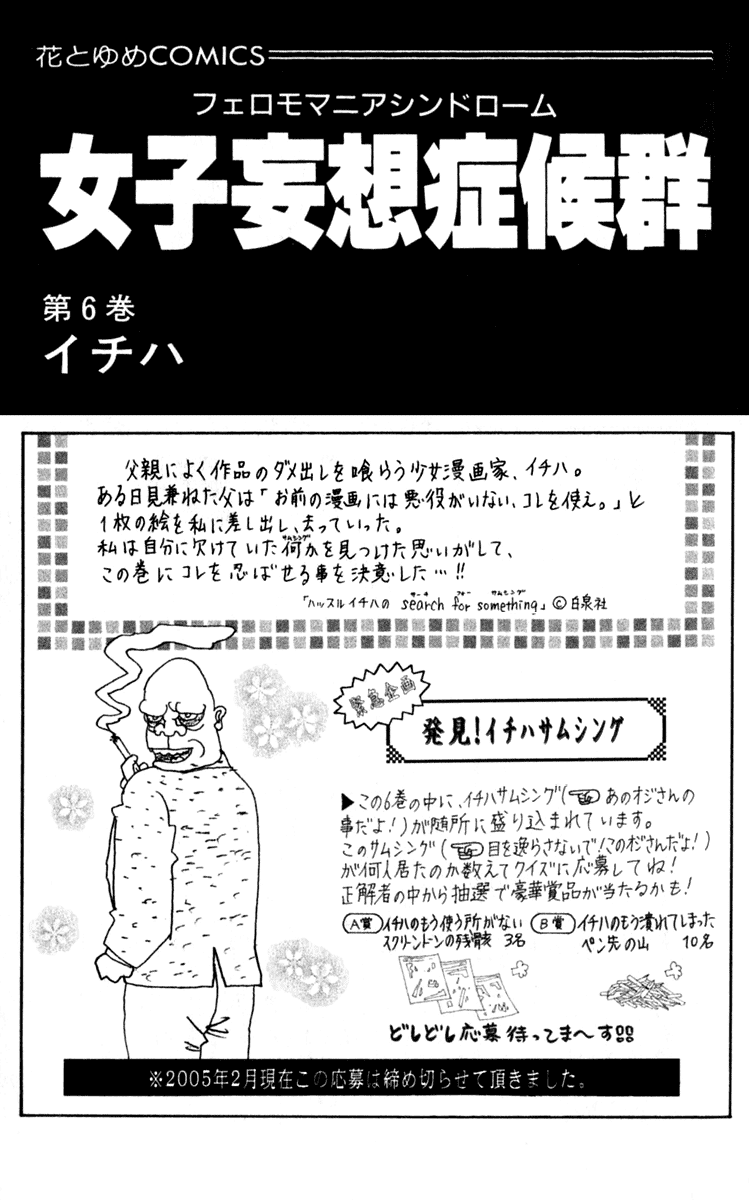 花とゆめCOMICS
フェロモマニアシンドローム
女子妄想症候群
第6巻
イチハ
父親によく作品のダメ出しを喰らう少女漫画家、イチハ。
ある日見兼ねた父は「お前の漫画には悪役がいない、コレを使え。」と
1枚の絵を私に差し出し、去っていった。
私は自分に欠けていた何かを見つけた思いがして、
サムシング
この巻にコレを忍ばせる事を決意した…!!
サーチ フォー サムシング
「ハッスルイチハの search for something」©白泉社
緊急企画
発見!イチハサムシング
▶この6巻の中に、イチハサムシング(☜あのオジさんの
事だよ!)が随所に盛り込まれています。
このサムシング(☜目を逸らさないで!このオジさんだよ!)
が何人居たのか数えてクイズに応募してね!
正解者の中から抽選で豪華賞品が当たるかも!
A賞 イチハのもう使う所がない
スクリーントーンの残骸 3名
B賞 イチハのもう潰れてしまった
ペン先の山 10名
どしどし応募待ってま〜す!!
※2005年2月現在この応募は締め切らせて頂きました。